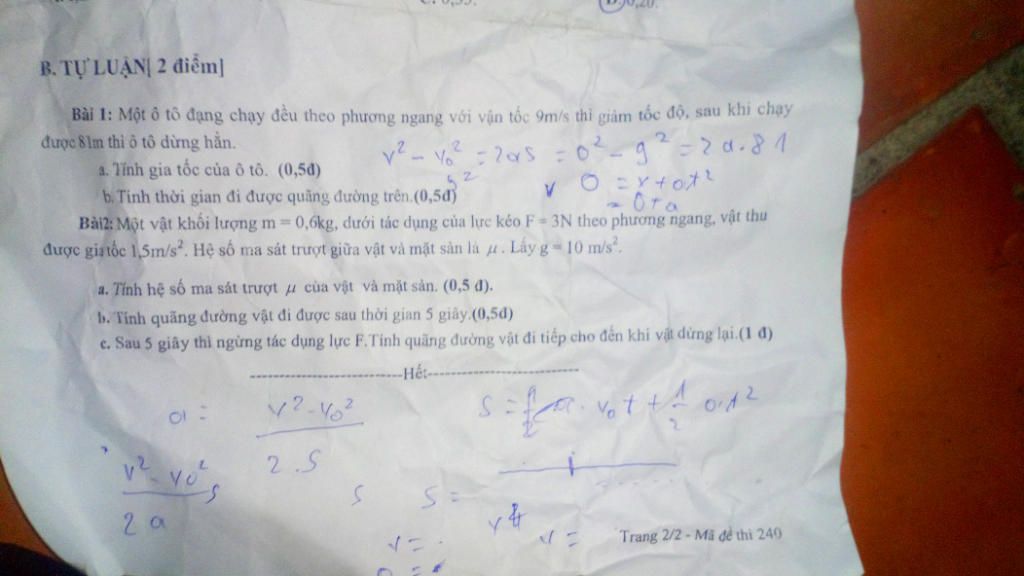 0,20.
B. TỰ LUẬN[ 2 điểm]
Bài 1: Một ô tô đạng chạy đều theo phương ngang với vận tốc 9m/s thì giảm tốc độ, sau khi chạy
được 81m thì ô tô dừng hẳn.
v² - v₀² = 2as = 0² - 9² = 2a.81
a. Tính gia tốc của ô tô. (0,5đ)
b. Tính thời gian đi được quãng đường trên.(0,5đ)
Bài2: Một vật khối lượng m = 0,6kg, dưới tác dụng của lực kéo F = 3N theo phương ngang, vật thu
được gia tốc 1,5m/s². Hệ số ma sát trượt giữa vật và mặt sàn là μ. Lấy g = 10 m/s².
a. Tính hệ số ma sát trượt μ của vật và mặt sàn. (0,5 đ).
b. Tính quãng đường vật đi được sau thời gian 5 giây.(0,5đ)
c. Sau 5 giây thì ngừng tác dụng lực F.Tính quãng đường vật đi tiếp cho đến khi vật dừng lại.(1 đ)
----------------------------Hết----------------------------
a = v² - v₀² / 2.S
v² - v₀² / 2a
S S =
v = v =
Trang 2/2 - Mã đề thi 240